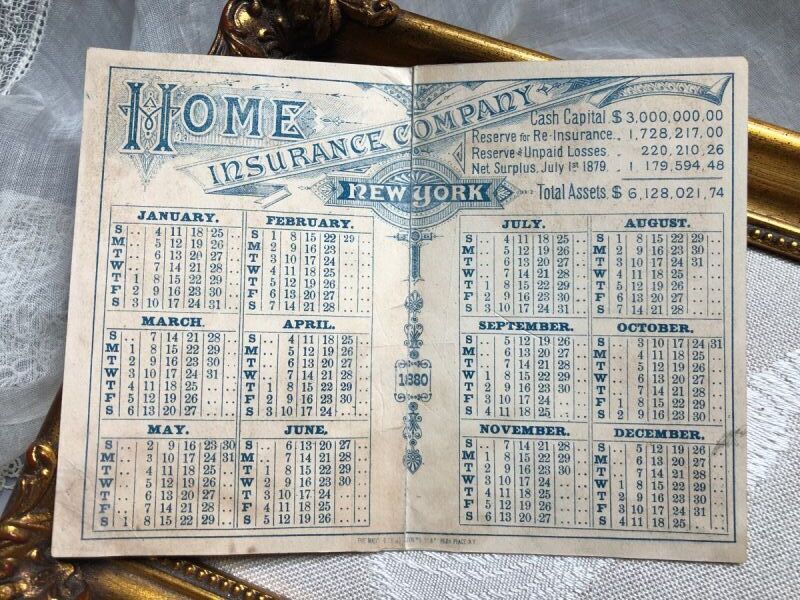 HOME
INSURANCE COMPANY
NEW YORK
Cash Capital $ 3,000,000.00
Reserve for Re-Insurance.. 1,728,217.00
Reserve for Unpaid Losses. 220,210,26
Net Surplus, July 1st 1879. 1 179,594.48
Total Assets $ 6,128,021,74
JANUARY.
S .. 4 11 18 25 ..
M .. 5 12 19 26 ..
T .. 6 13 20 27 ..
W .. 7 14 21 28 ..
T 1 8 15 22 29 ..
F 2 9 16 23 30 ..
S 3 10 17 24 31 ..
FEBRUARY.
S 1 8 15 22 29 ..
M 2 9 16 23 .. ..
T 3 10 17 24 .. ..
W 4 11 18 25 .. ..
T 5 12 19 26 .. ..
F 6 13 20 27 .. ..
S 7 14 21 28 .. ..
MARCH.
S .. 7 14 21 28 ..
M 1 8 15 22 29 ..
T 2 9 16 23 30 ..
W 3 10 17 24 31 ..
T 4 11 18 25 .. ..
F 5 12 19 26 .. ..
S 6 13 20 27 .. ..
APRIL.
S .. 4 11 18 25 ..
M .. 5 12 19 26 ..
T .. 6 13 20 27 ..
W .. 7 14 21 28 ..
T 1 8 15 22 29 ..
F 2 9 16 23 30 ..
S 3 10 17 24 .. ..
MAY.
S .. 2 9 16 23 30
M .. 3 10 17 24 31
T .. 4 11 18 25 ..
W .. 5 12 19 26 ..
T .. 6 13 20 27 ..
F .. 7 14 21 28 ..
S 1 8 15 22 29 ..
JUNE.
S .. 6 13 20 27 ..
M .. 7 14 21 28 ..
T 1 8 15 22 29 ..
W 2 9 16 23 30 ..
T 3 10 17 24 .. ..
F 4 11 18 25 .. ..
S 5 12 19 26 .. ..
1880
JULY.
S .. 4 11 18 25 ..
M .. 5 12 19 26 ..
T .. 6 13 20 27 ..
W .. 7 14 21 28 ..
T 1 8 15 22 29 ..
F 2 9 16 23 30 ..
S 3 10 17 24 31 ..
AUGUST.
S 1 8 15 22 29 ..
M 2 9 16 23 30 ..
T 3 10 17 24 31 ..
W 4 11 18 25 .. ..
T 5 12 19 26 .. ..
F 6 13 20 27 .. ..
S 7 14 21 28 .. ..
SEPTEMBER.
S .. 5 12 19 26 ..
M .. 6 13 20 27 ..
T .. 7 14 21 28 ..
W 1 8 15 22 29 ..
T 2 9 16 23 30 ..
F 3 10 17 24 .. ..
S 4 11 18 25 .. ..
OCTOBER.
S .. 3 10 17 24 31
M .. 4 11 18 25 ..
T .. 5 12 19 26 ..
W .. 6 13 20 27 ..
T .. 7 14 21 28 ..
F 1 8 15 22 29 ..
S 2 9 16 23 30 ..
NOVEMBER.
S .. 7 14 21 28 ..
M 1 8 15 22 29 ..
T 2 9 16 23 30 ..
W 3 10 17 24 .. ..
T 4 11 18 25 .. ..
F 5 12 19 26 .. ..
S 6 13 20 27 .. ..
DECEMBER.
S .. 5 12 19 26 ..
M .. 6 13 20 27 ..
T .. 7 14 21 28 ..
W 1 8 15 22 29 ..
T 2 9 16 23 30 ..
F 3 10 17 24 31 ..
S 4 11 18 25 .. ..
PARK PLACE N.Y.